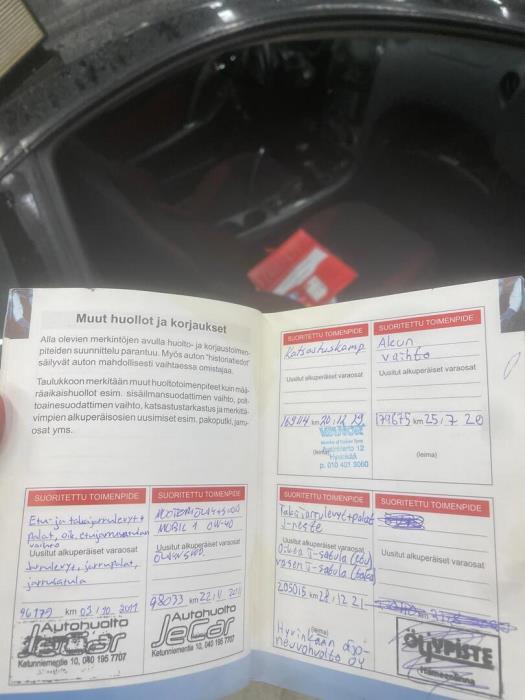 Muut huollot ja korjaukset
Alla olevien merkintöjen avulla huolto- ja korjaustoimen-
piteiden suunnittelu parantuu. Myös auton "historiatiedot"
säilyvät auton mahdollisesti vaihtaessa omistajaa.
Taulukkoon merkitään muut huoltotoimenpiteet kuin mää-
räaikaishuollot esim. sisäilmansuodattimen vaihto, polt-
toainesuodattimen vaihto, katsastustarkastus ja merkitä
vimpien alkuperäisosien uusimiset esim. pakoputki, jarru-
osat yms.
SUORITETTU TOIMENPIDE
Etu- ja takajarrulevyt+
palat, oik. etujarrusatulan
vaihto
Uusitut alkuperäiset varaosat
Jarrulevyt, jarrupalat,
jarrusatula
96179 km 03.10.2011
Autohuolto
JeCar
Katunniementie 10, 040 195 7707
SUORITETTU TOIMENPIDE
MOBIL 1 0W-40
Uusitut alkuperäiset varaosat
98033 km 22.11.2011
Autohuolto
JeCar
Katunniementie 10, 040 195 7707
SUORITETTU TOIMENPIDE
Katsastuskamp.
Uusitut alkuperäiset varaosat
169114 km 20.12.19
(leima)
Hyvinkää
p. 010 401 3060
SUORITETTU TOIMENPIDE
Akun
vaihto
Uusitut alkuperäiset varaosat
179675 km 25.7 20
(leima)
SUORITETTU TOIMENPIDE
Takajarrulevyt+palat
J-neste
Uusitut alkuperäiset varaosat
Oikea J-satula (etu)
vasen J-satula (taka)
205015 km 28.12 21
(leima)
Hyvinkään ajo-
neuvohuolto oy
SUORITETTU TOIMENPIDE
Uusitut alkuperäiset varaosat
km
ÖLJYPISTE
Hämeenlinna